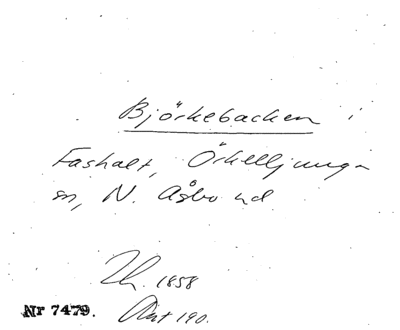 Björkebacken i
Fashalt, Örkelljunga
sn, N. Åsbo hd
1858
Nr 7479. Akt 190.